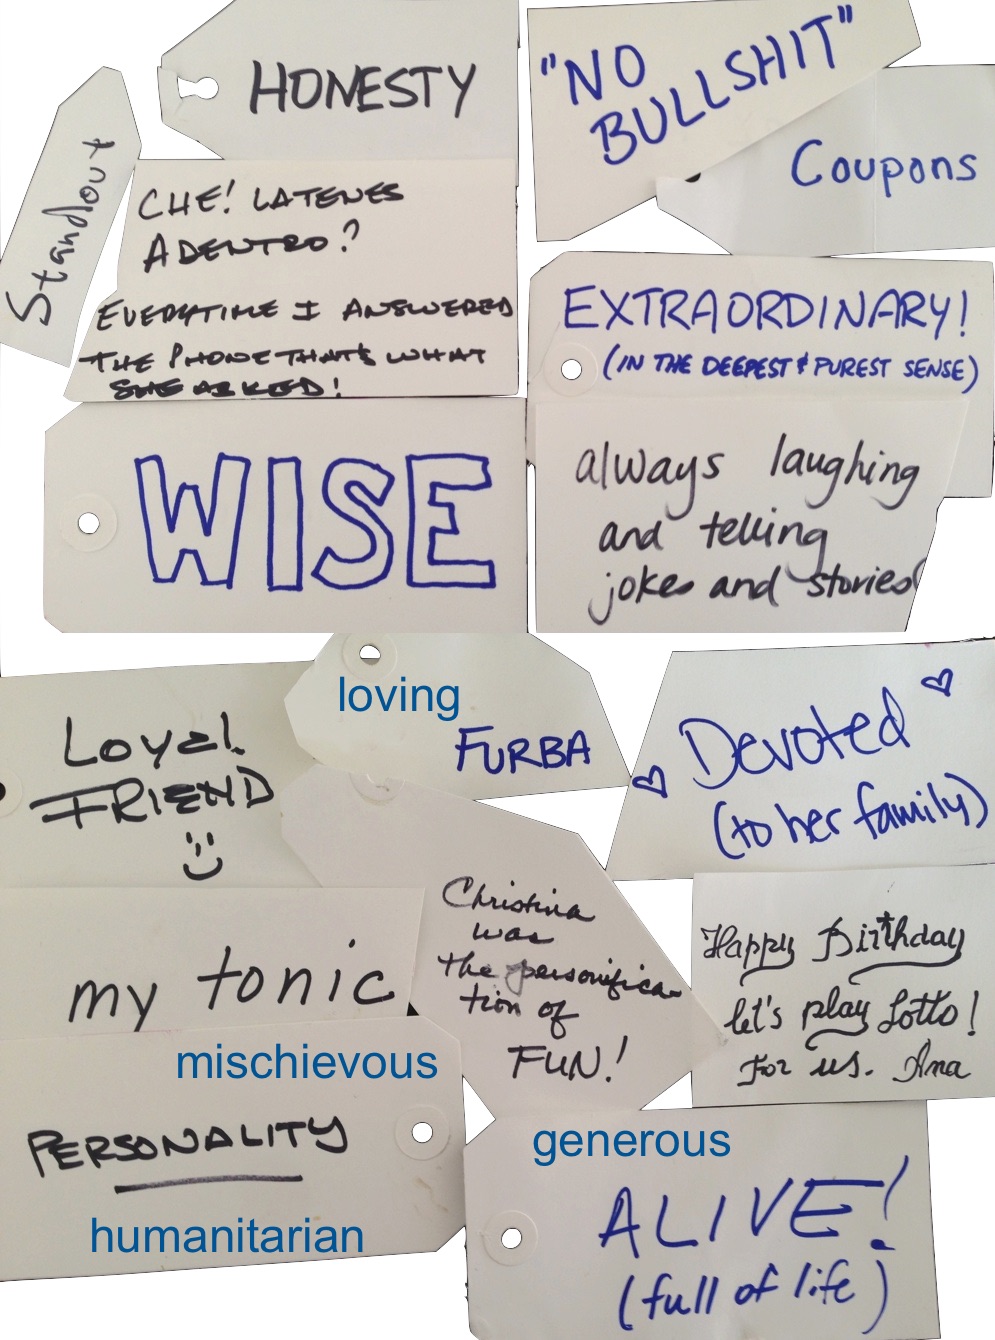 HONESTY
"NO
BULLSHIT"
Coupons
Standout
CHE! LATENES
ADENTRO?
EVERYTIME I ANSWERED
THE PHONE THAT'S WHAT
SHE ASKED!
EXTRAORDINARY!
(IN THE DEEPEST & PUREST SENSE)
WISE
always laughing
and telling
jokes and stories
loving
FURBA
Loyal
FRIEND
Devoted
(to her family)
my tonic
Christina
was
the personifica
tion of
FUN!
Happy Birthday
let's play Lotto!
For us. Ana
mischievous
PERSONALITY
humanitarian
generous
ALIVE!
(full of life)